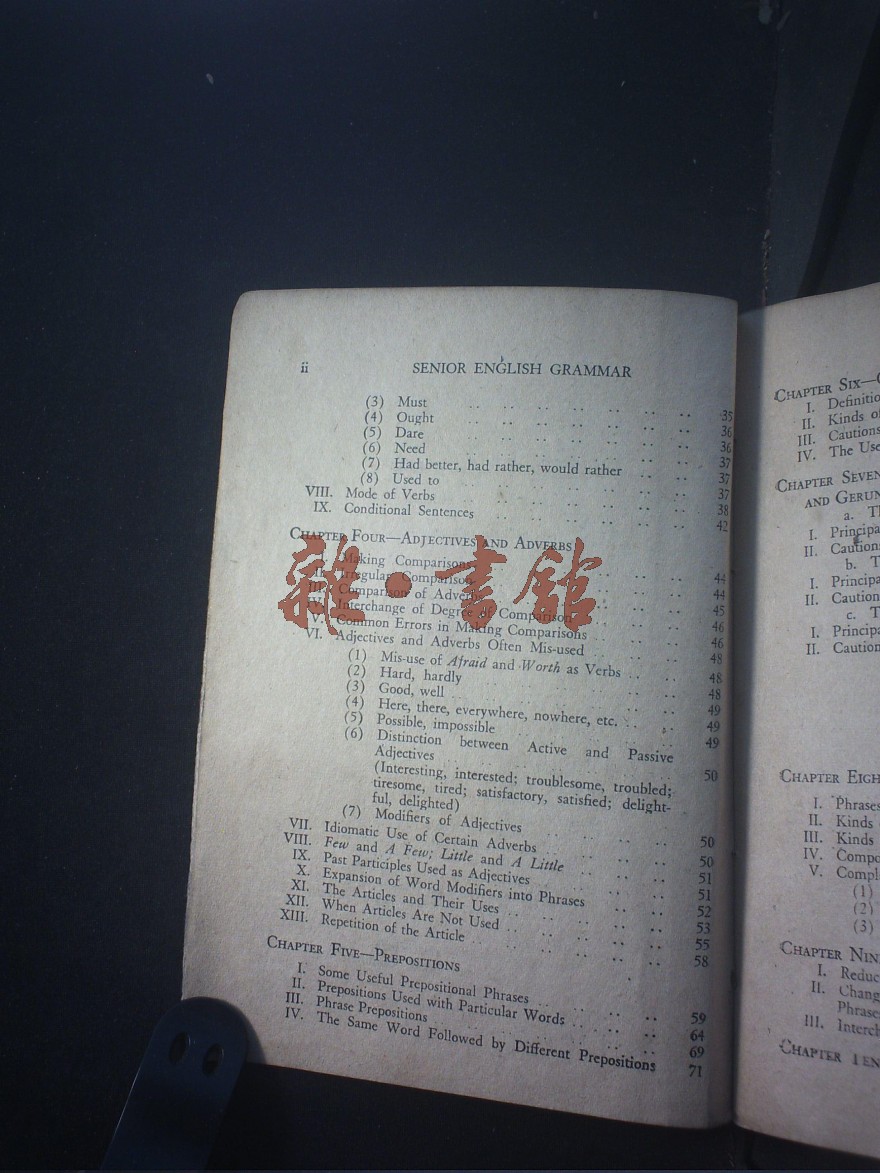 ii SENIOR ENGLISH GRAMMAR
(3) Must .. .. .. .. .. .. .. 35
(4) Ought .. .. .. .. .. .. .. 36
(5) Dare .. .. .. .. .. .. .. 36
(6) Need .. .. .. .. .. .. .. 37
(7) Had better, had rather, would rather .. .. 37
(8) Used to .. .. .. .. .. .. 37
VIII. Mode of Verbs .. .. .. .. .. .. 38
IX. Conditional Sentences .. .. .. .. .. 42
CHAPTER FOUR—ADJECTIVES AND ADVERBS
I. Making Comparisons .. .. .. .. 44
II. Irregular Comparison .. .. .. .. 44
III. Comparison of Adverbs .. .. .. .. 45
IV. Interchange of Degree of Comparison .. .. 46
V. Common Errors in Making Comparisons .. .. 46
VI. Adjectives and Adverbs Often Mis-used .. .. 48
(1) Mis-use of Afraid and Worth as Verbs .. .. 48
(2) Hard, hardly .. .. .. .. .. 48
(3) Good, well .. .. .. .. .. 49
(4) Here, there, everywhere, nowhere, etc. .. .. 49
(5) Possible, impossible .. .. .. .. 49
(6) Distinction between Active and Passive
Adjectives .. .. .. .. .. 50
(Interesting, interested; troublesome, troubled;
tiresome, tired; satisfactory, satisfied; delight-
ful, delighted)
(7) Modifiers of Adjectives .. .. .. 50
VII. Idiomatic Use of Certain Adverbs .. .. .. 50
VIII. Few and A Few; Little and A Little .. .. 51
IX. Past Participles Used as Adjectives .. .. .. 51
X. Expansion of Word Modifiers into Phrases .. .. 52
XI. The Articles and Their Uses .. .. .. .. 53
XII. When Articles Are Not Used .. .. .. .. 55
XIII. Repetition of the Article .. .. .. .. 58
CHAPTER FIVE—PREPOSITIONS
I. Some Useful Prepositional Phrases .. .. .. 59
II. Prepositions Used with Particular Words .. .. 64
III. Phrase Prepositions .. .. .. .. 69
IV. The Same Word Followed by Different Prepositions 71
雜·書館
CHAPTER SIX—
I. Definitio
II. Kinds of
III. Cautions
IV. The Use
CHAPTER SEVEN
AND GERUN
a. T
I. Principa
II. Cautions
b. T
I. Principa
II. Caution
c. T
I. Principa
II. Caution
CHAPTER EIGH
I. Phrases
II. Kinds
III. Kinds
IV. Compo
V. Compl
(1)
(2)
(3)
CHAPTER NIN
I. Reduc
II. Chang
Phrase
III. Interch
CHAPTER TEN